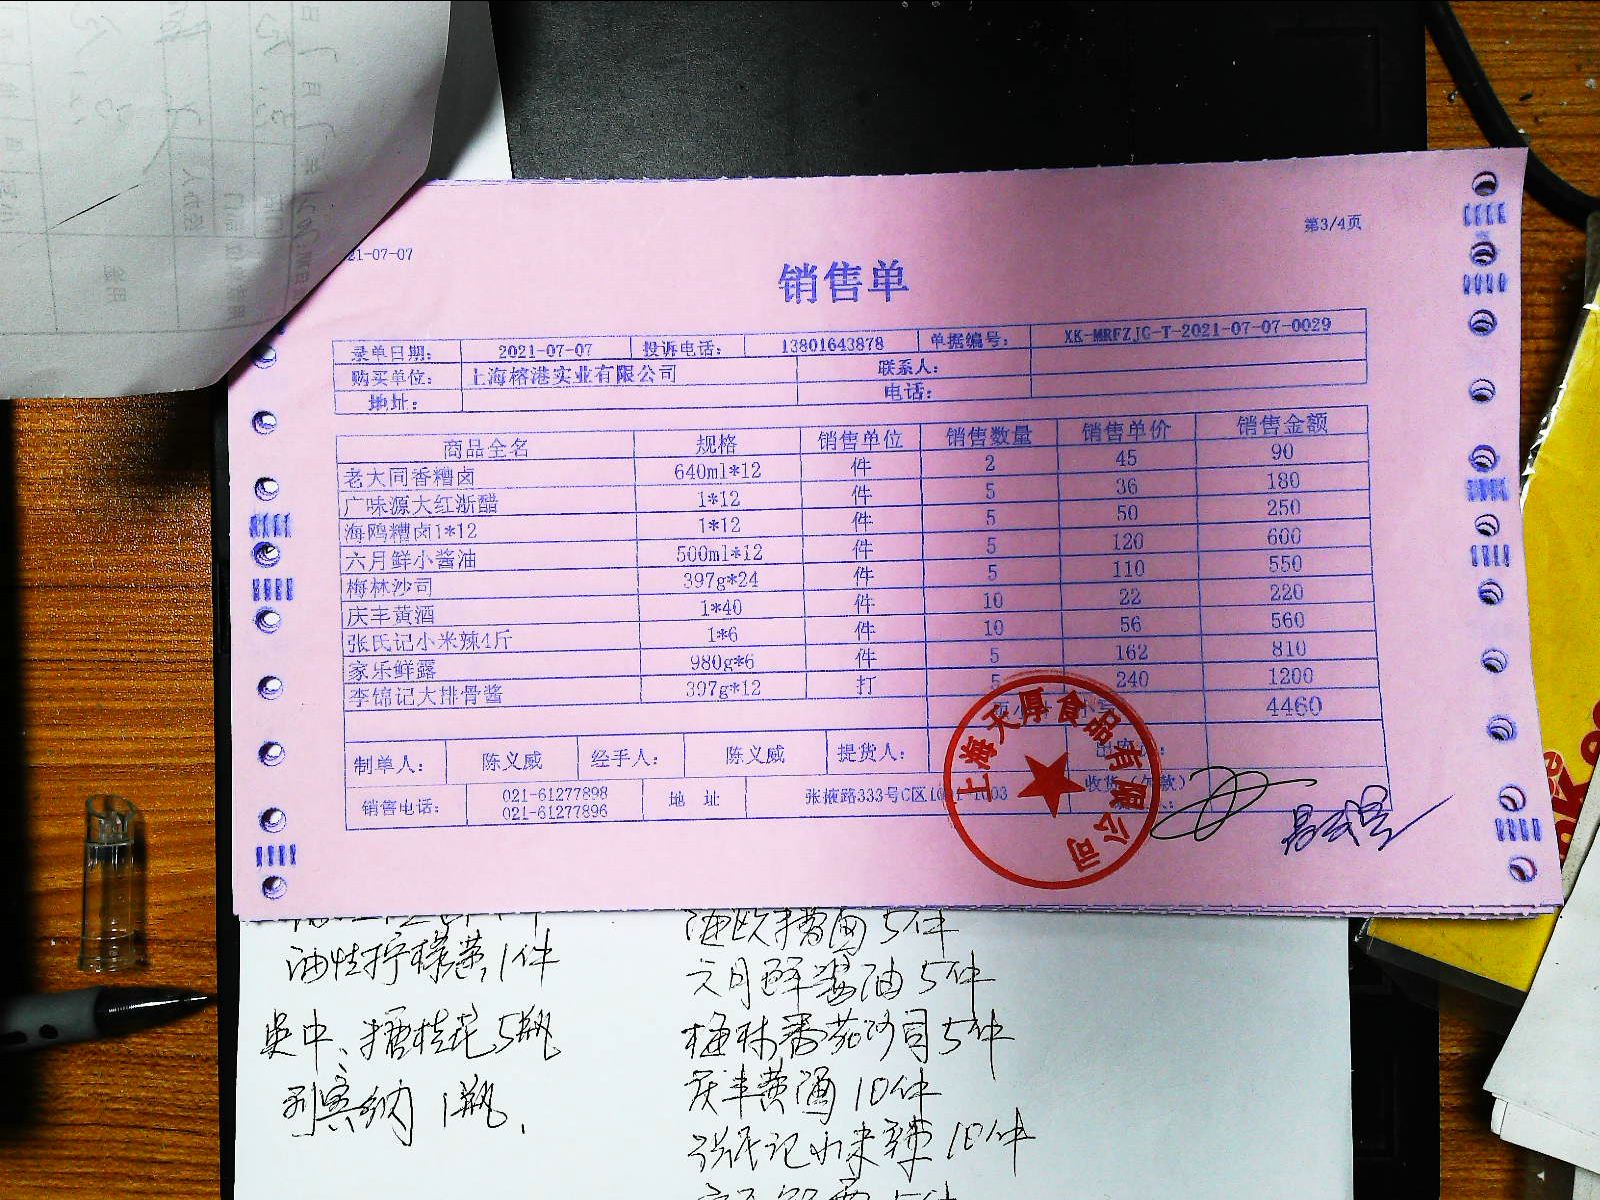 第3/4页
21-07-07
销售单
录单日期: 2021-07-07 投诉电话: 13801643878 单据编号: XK-MRFZJG-T-2021-07-07-0029
购买单位: 上海榕港实业有限公司 联系人:
地址: 电话:
商品全名 规格 销售单位 销售数量 销售单价 销售金额
老大同香糟卤 640ml*12 件 2 45 90
广味源大红浙醋 1*12 件 5 36 180
海鸥糟卤1*12 1*12 件 5 50 250
六月鲜小酱油 500ml*12 件 5 120 600
梅林沙司 397g*24 件 5 110 550
庆丰黄酒 1*40 件 10 22 220
张氏记小米辣4斤 1*6 件 10 56 560
家乐鲜露 980g*6 件 5 162 810
李锦记大排骨酱 397g*12 打 5 240 1200
4460
制单人: 陈义威 经手人: 陈义威 提货人:
销售电话: 021-61277898 地 址 张掖路333号C区
021-61277896
收货(欠款)
上海天厚食品有限公司
油性柠檬黄, 1件
吴中、糖桂花5瓶
利宾纳 1瓶.
海欧糟卤 5件
六月鲜酱油 5件
梅林番茄沙司5件
庆丰黄酒 10件
张氏记小米辣 10件